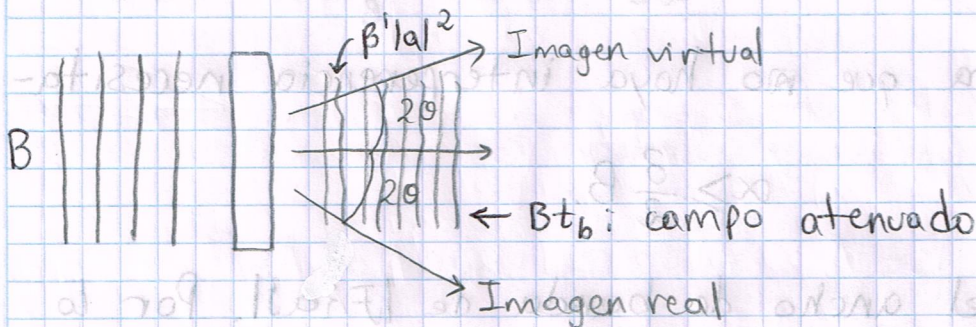 β'|a|²
Imagen virtual
2θ
B
2θ
← Bt_b : campo atenuado
Imagen real